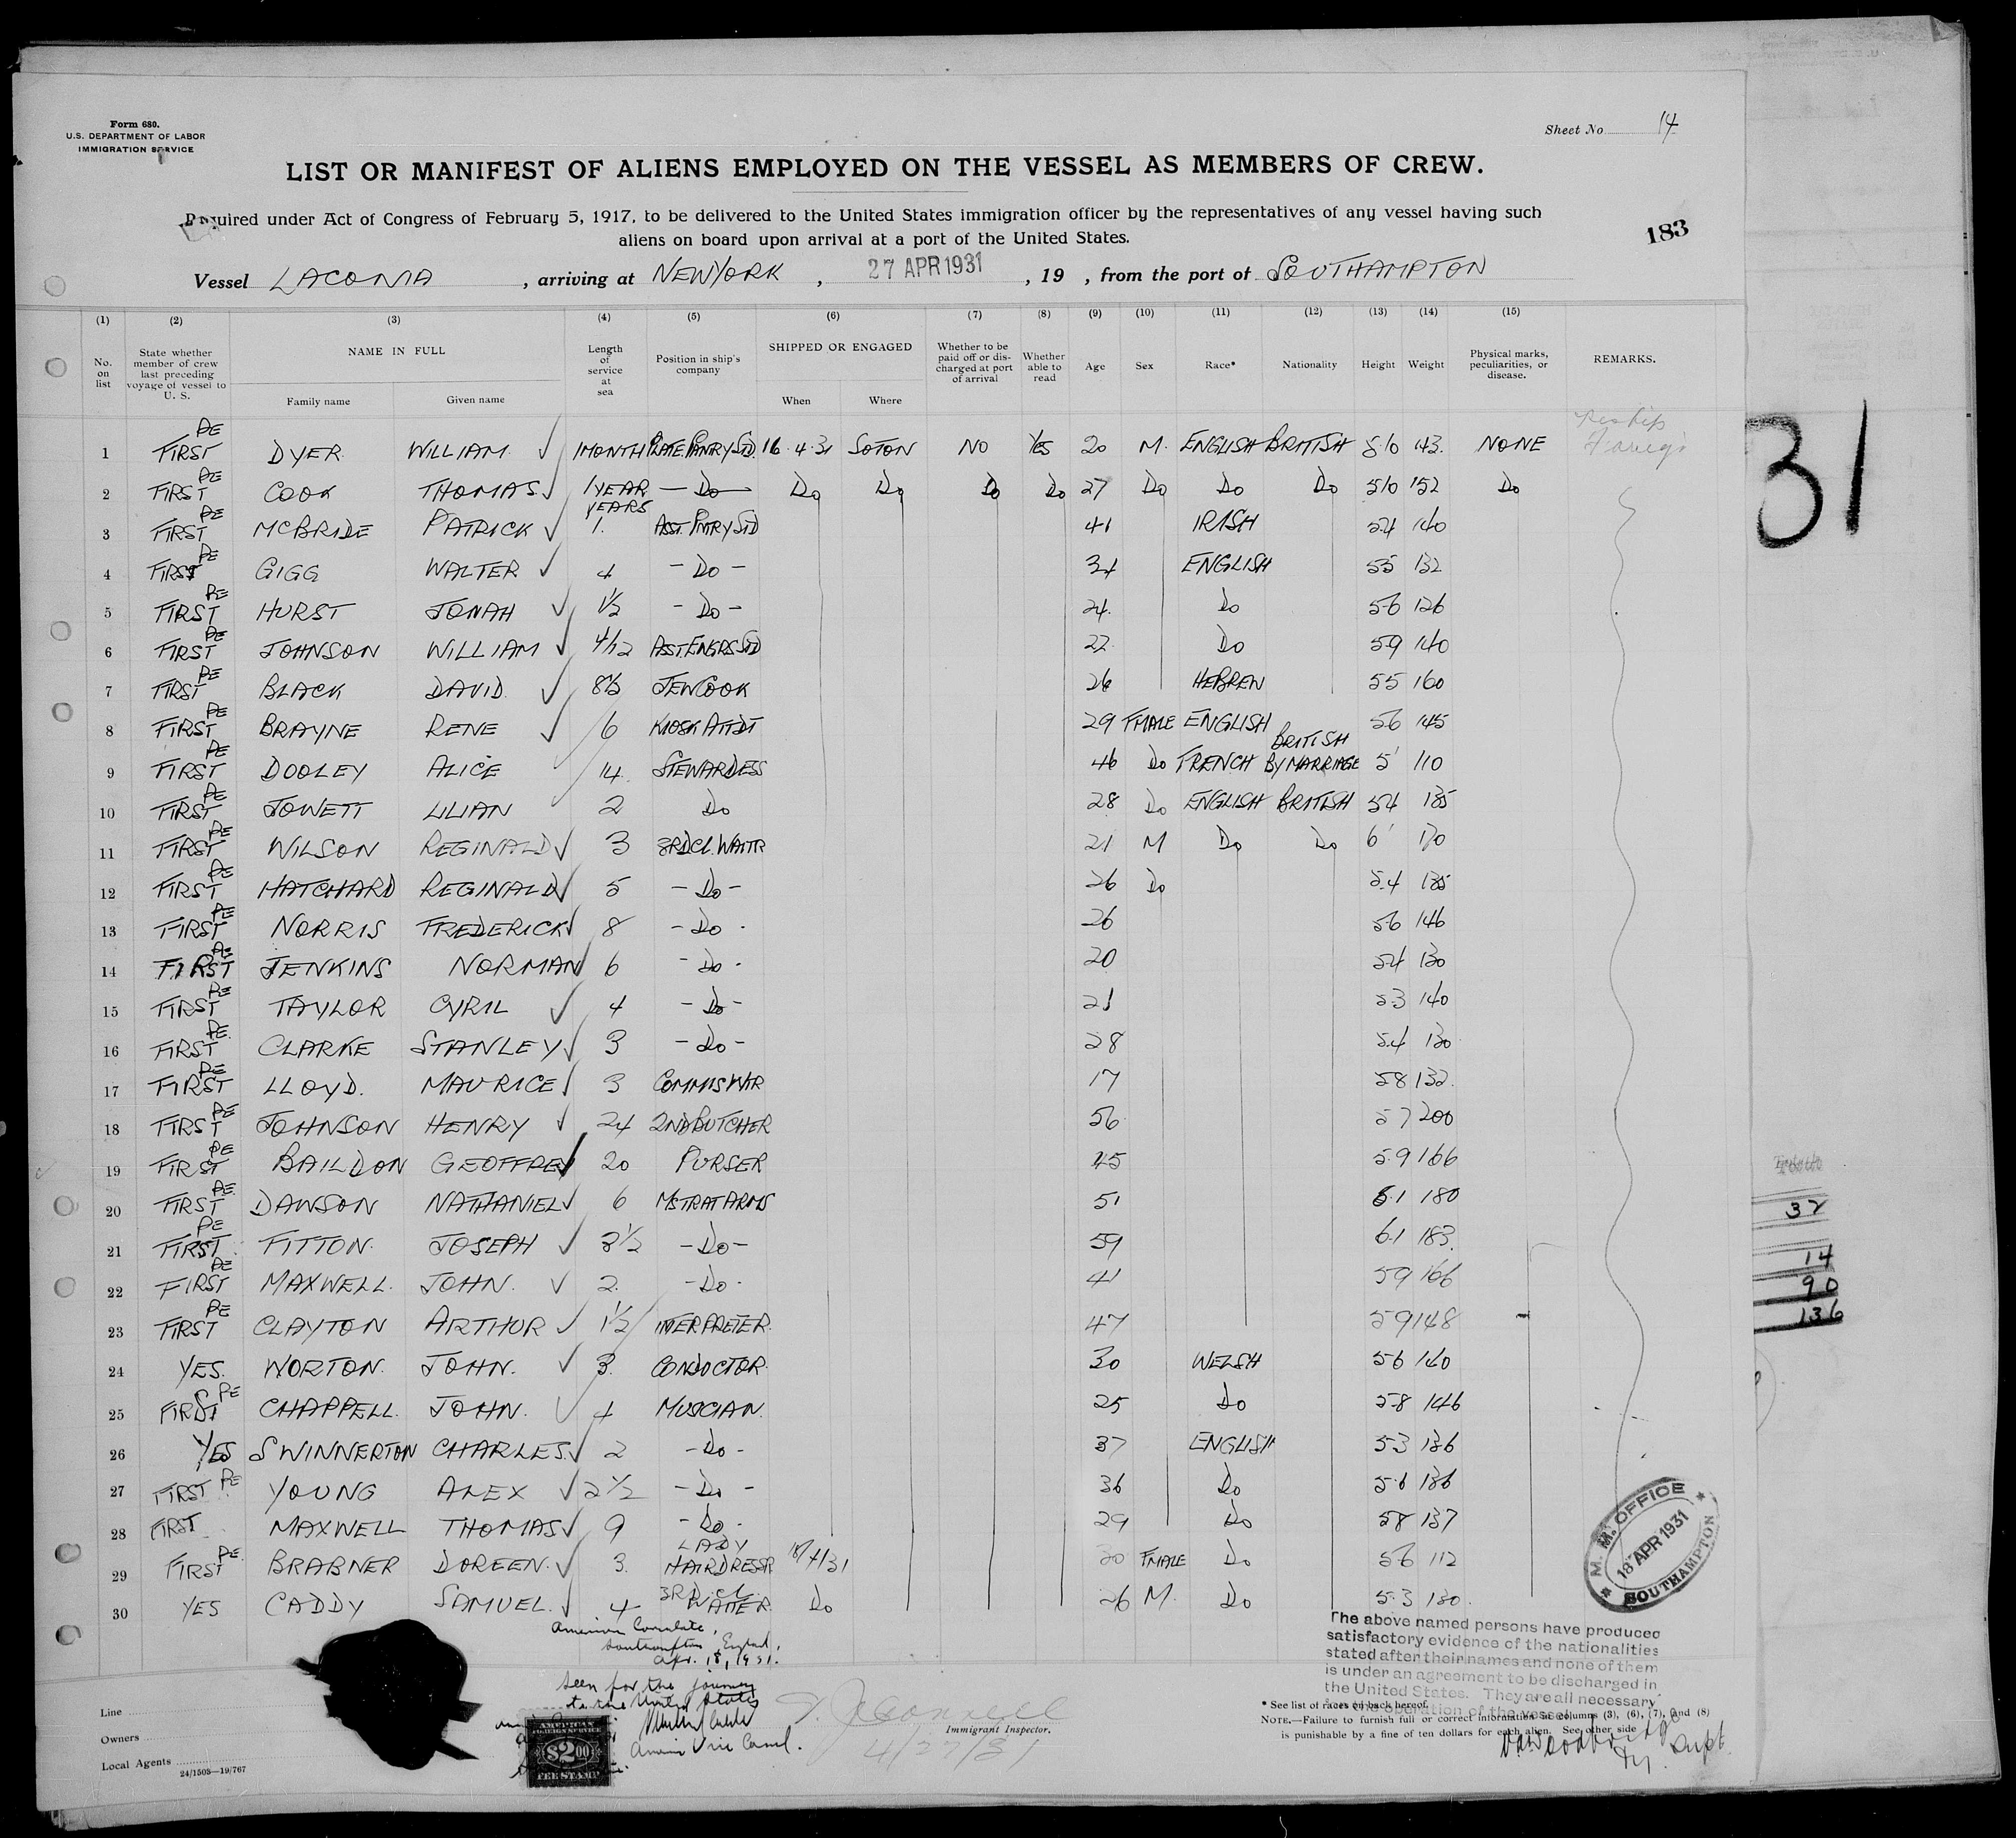 Form 680.
U.S. DEPARTMENT OF LABOR
IMMIGRATION SERVICE
Sheet No. 14
LIST OR MANIFEST OF ALIENS EMPLOYED ON THE VESSEL AS MEMBERS OF CREW.
Required under Act of Congress of February 5, 1917, to be delivered to the United States immigration officer by the representatives of any vessel having such
aliens on board upon arrival at a port of the United States.
183
Vessel LACONIA, arriving at NEW YORK, 27 APR 1931, 19 , from the port of SOUTHAMPTON
(1) (2) (3) (4) (5) (6) (7) (8) (9) (10) (11) (12) (13) (14) (15)
No. on list State whether member of crew last preceding voyage of vessel to U. S. NAME IN FULL Family name Given name Length of service at sea Position in ship's company SHIPPED OR ENGAGED When Where Whether to be paid off or discharged at port of arrival Whether able to read Age Sex Race* Nationality Height Weight Physical marks, peculiarities, or disease. REMARKS.
1 FIRST PE DYER WILLIAM 1 MONTH PLATE PANRY STD. 16.4.31 SOTON NO YES 20 M. ENGLISH BRITISH 5 10 143 NONE
2 FIRST PE COOK THOMAS 1 YEAR - Do - Do Do Do Do 27 Do Do Do 5 10 152 Do
YEARS
3 FIRST PE MCBRIDE PATRICK 1. ASST. PNTRY STD 41 IRISH 5 4 140
4 FIRST PE GIGG WALTER 4 - Do - 34 ENGLISH 5 5 132
5 FIRST PE HURST JONAH 1½ - Do - 24. Do 5-6 126
6 FIRST PE JOHNSON WILLIAM 4/12 ASST. ENGRS STD 22 Do 5-9 140
7 FIRST PE BLACK DAVID 8½ JEW COOK 26 HEBREW 5 5 160
8 FIRST PE BRAYNE RENE 6 KIOSK ATTDT 29 FMALE ENGLISH 5 6 145
9 FIRST PE DOOLEY ALICE 14. STEWARDESS 46 Do FRENCH BRITISH BY MARRIAGE 5' 110
10 FIRST PE JOWETT LILIAN 2 Do 28 Do ENGLISH BRITISH 5 4 135
11 FIRST PE WILSON REGINALD 3 3RD CL. WAITR 21 M Do Do 6' 170
12 FIRST PE HATCHARD REGINALD 5 - Do - 26 Do 5.4 135
13 FIRST PE NORRIS FREDERICK 8 - Do - 26 5-6 146
14 FIRST PE JENKINS NORMAN 6 - Do - 20 5-4 130
15 FIRST PE TAYLOR CYRIL 4 - Do - 21 5-3 140
16 FIRST PE CLARKE STANLEY 3 - Do - 28 5.4 130
17 FIRST PE LLOYD. MAURICE 3 COMMIS WTR 17 5 8 132.
18 FIRST PE JOHNSON HENRY 24 2ND BUTCHER 56 5 7 200
19 FIRST PE BAILDON GEOFFREY 20 PURSER 45 5.9 166
20 FIRST PE DAWSON NATHANIEL 6 MSTR AT ARMS 51 6.1 180
21 FIRST PE FITTON. JOSEPH 3½ - Do - 59 6.1 183.
22 FIRST PE MAXWELL. JOHN. 2. - Do - 41 5 9 166
23 FIRST PE CLAYTON ARTHUR 1½ INTERPRETER. 47 5 9 148
24 YES. WORTON. JOHN. 3. CONDUCTOR. 30 WELSH 5 6 140
25 FIRST PE CHAPPELL. JOHN. 4 MUSCIAN. 25 Do 5-8 146
26 YES SWINNERTON CHARLES. 2 - Do - 37 ENGLISH 5-3 136
27 FIRST PE YOUNG ALEX 2½ - Do - 36 Do 5-6 136
28 FIRST MAXWELL THOMAS 9 - Do - 29 Do 5 8 137
29 FIRST PE BRABNER DOREEN. 3. LADY HAIRDRESR 18/4/31 30 FMALE Do 5 6 112
30 YES CADDY SAMUEL. 4 3RD CL. WAITER. Do 26 M. Do 5.3 130.
31
32
14
90
136
M. M. OFFICE
18 APR 1931
SOUTHAMPTON
American Consulate,
Southampton, England,
Apr. 18, 1931.
Seen for the journey
to the United States
American Vice Consul.
AMERICAN
FOREIGN SERVICE
$2.00
FEE STAMP
The above named persons have produced
satisfactory evidence of the nationalities
stated after their names and none of them
is under an agreement to be discharged in
the United States. They are all necessary
to the operation of the vessel.
Line
Owners
Local Agents
24/1503—19/767
Immigrant Inspector.
4/27/31
* See list of races on back hereof.
NOTE.—Failure to furnish full or correct information as to columns (3), (6), (7), and (8)
is punishable by a fine of ten dollars for each alien. See other side
Supt.